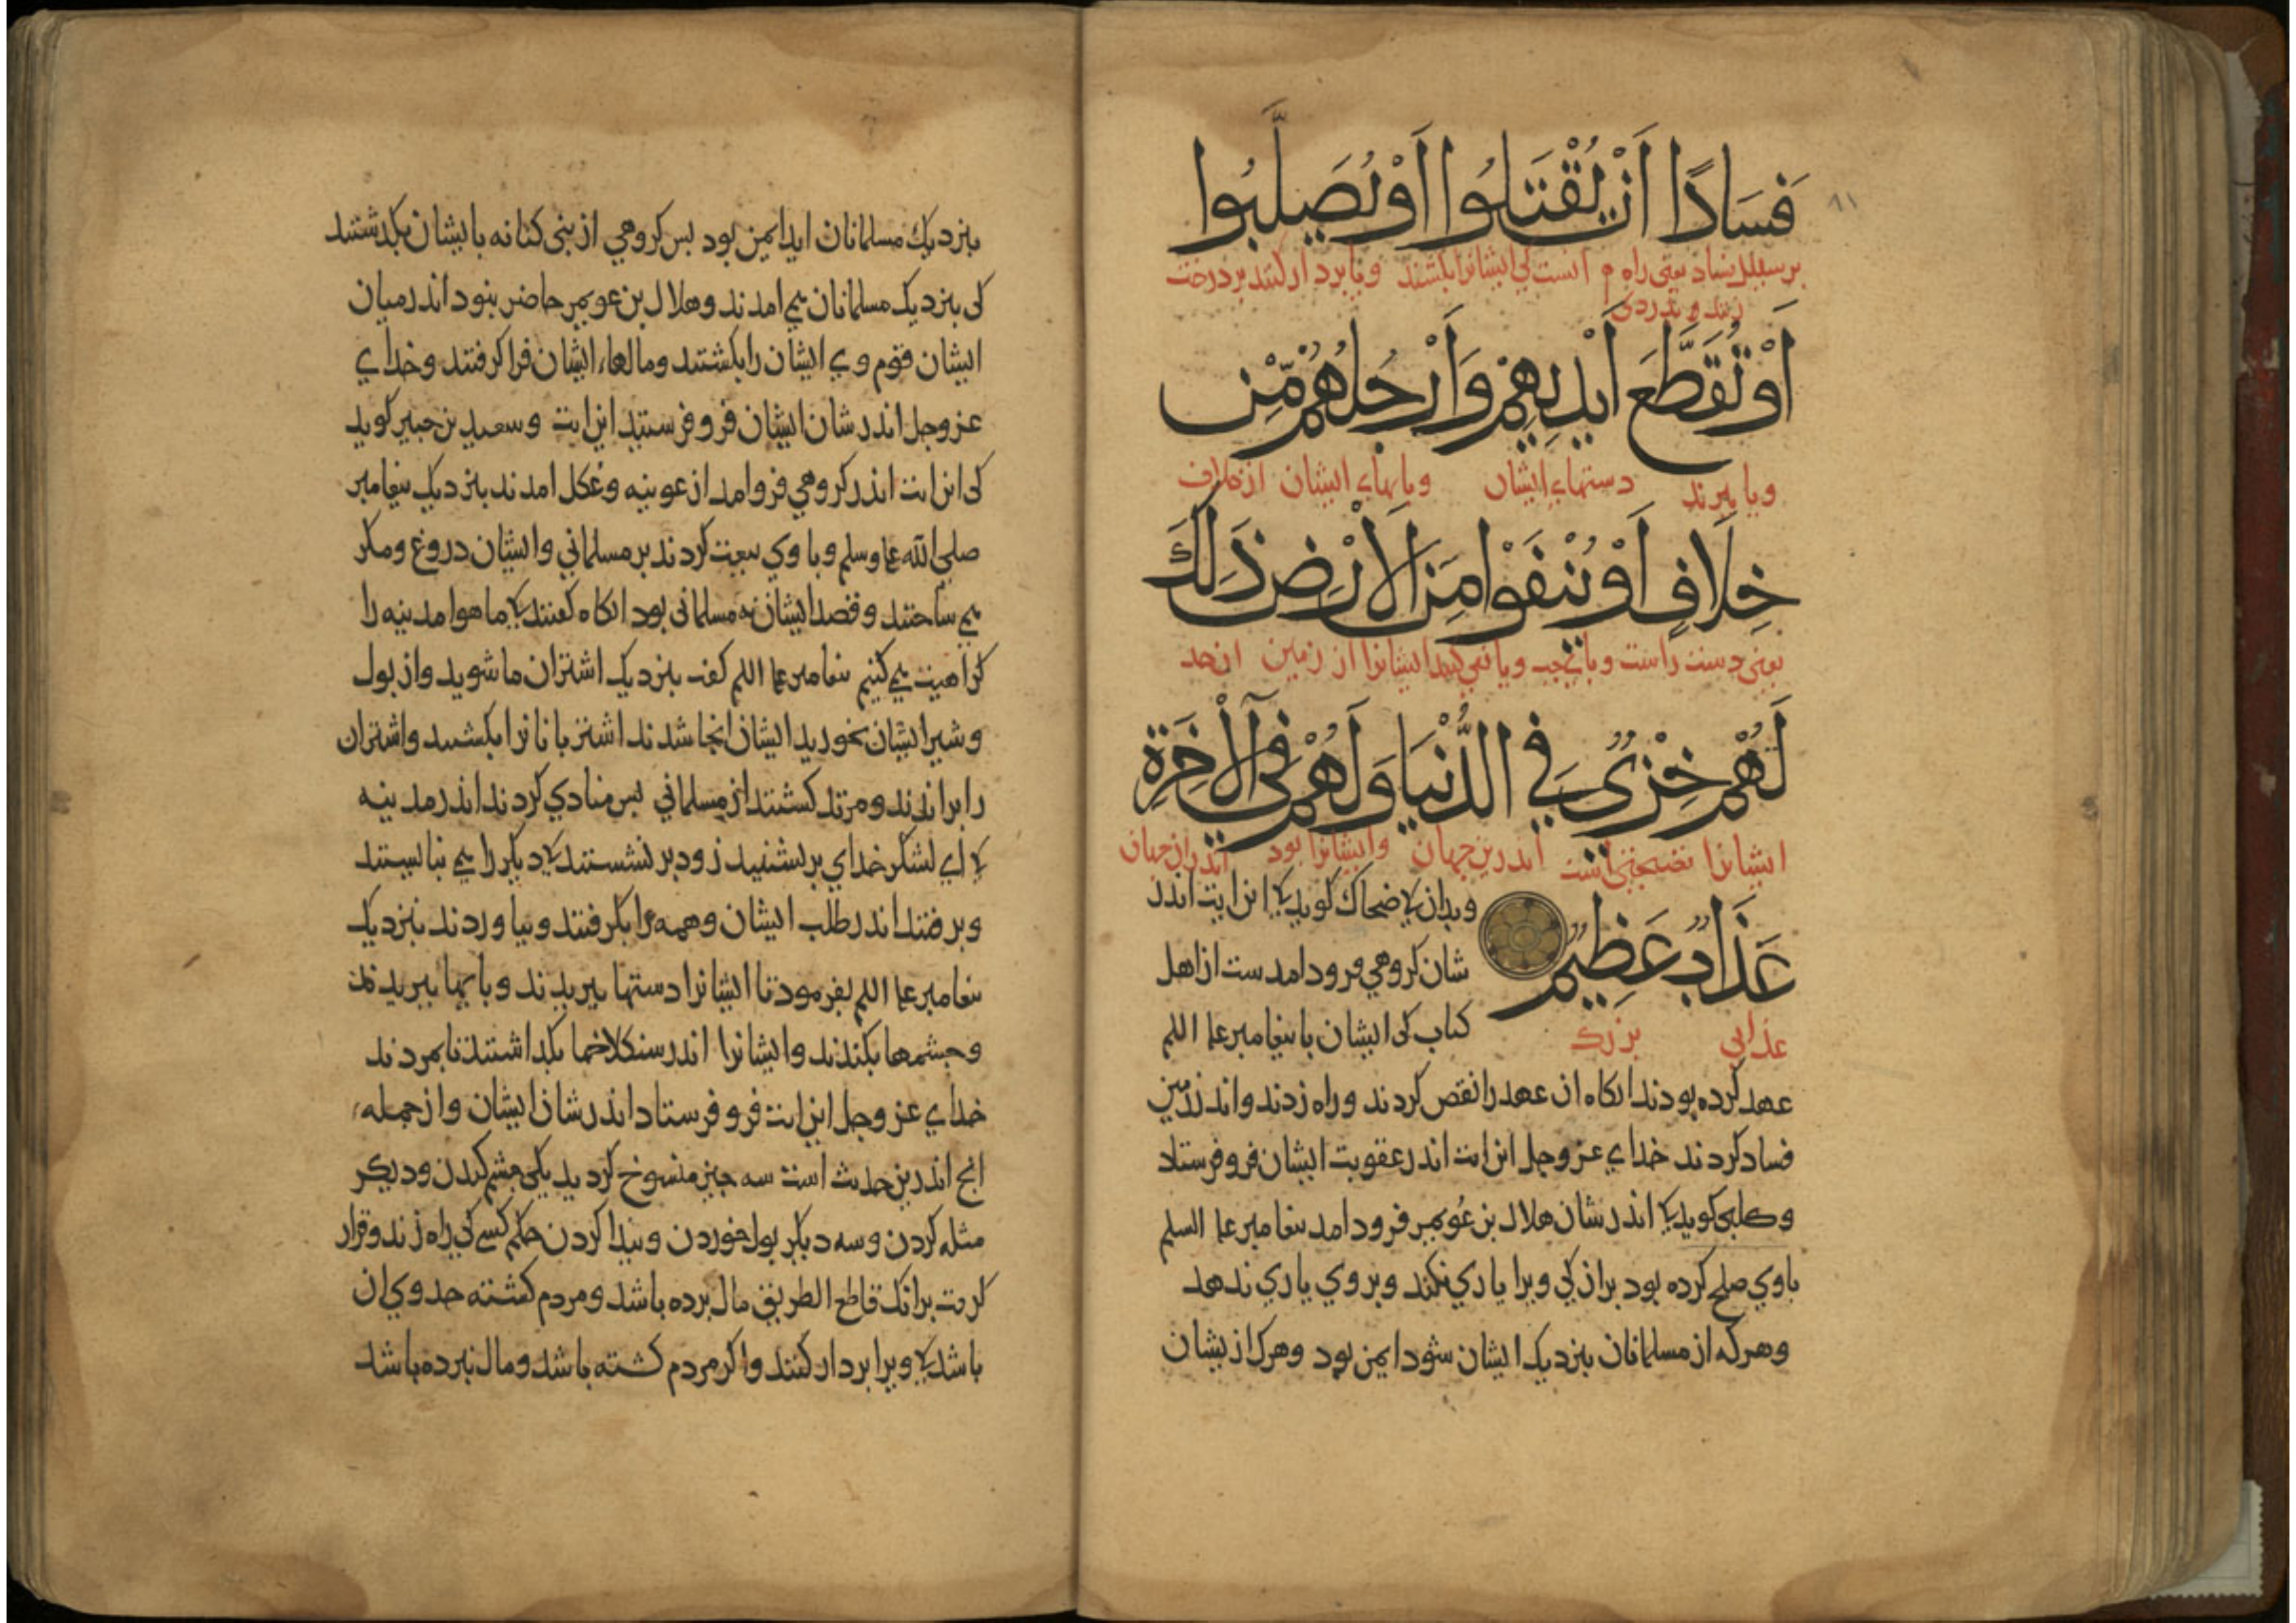 فَسَادًا أَنْ يُقَتَّلُوا أَوْ يُصَلَّبُوا
بر سبیل فساد یعنی راه م انست کی ایشانرا بکشند ویا بردار کنند بر درخت
زنند و دزدی
أَوْ تُقَطَّعَ أَيْدِيهِمْ وَأَرْجُلُهُمْ مِّنْ
ویا ببرند دستهاء ایشان وپایهاء ایشان از خلاف
خِلَافٍ أَوْ يُنْفَوْا مِنَ الْأَرْضِ ذَلِكَ
یعنی دست راست وپای چپ ویا نفی کنند ایشانرا از زمین ان حد
لَهُمْ خِزْيٌ فِي الدُّنْيَا وَلَهُمْ فِي الْآخِرَةِ
ایشانرا فضیحتی است اندرین جهان وایشانرا بود اندران جهان
عَذَابٌ عَظِيمٌ
عذابی بزرک
وبدان کی ضحاک کوید کی این ایت اندر
شان کروهی فرود امدست از اهل
کتاب کی ایشان با بیغامبر علیه السلم
عهد کرده بودند انکاه ان عهد را نقص کردند وراه زدند واندر زمین
فساد کردند خدای عز وجل این ایت اندر عقوبت ایشان فرو فرستاد
وکلبی کوید کی اندر شان هلال بن عویمر فرود امد بیغامبر علیه السلم
باوی صلح کرده بود بران کی ویرا یاری نکند وبر وی یاری ندهد
وهرکه از مسلمانان بنزدیک ایشان شود ایمن بود وهرک ازیشان
بنزدیک مسلمانان اید ایمن بود بس کروهی از بنی کنانه با ایشان بکذشتند
کی بنزدیک مسلمانان می امدند وهلال بن عویمر حاضر نبود اندر میان
ایشان قوم وی ایشان را بکشتند ومالهاء ایشان فرا کرفتند وخدای
عز وجل اندر شان ایشان فرو فرستید این ایت وسعید بن جبیر کوید
کی این ایت اندر کروهی فرو امد از عرینه وعکل امدند بنزدیک بیغامبر
صلی الله علیه وسلم وبا وی بیعت کردند بر مسلمانی وایشان دروغ ومکر
می ساختند وقصد ایشان نه مسلمانی بود انکاه کفتند کی ما هوا مدینه را
کراهیت می کنیم بیغامبر علیه السلم کفت بنزدیک اشتران ما شوید واز بول
وشیر ایشان بخورید ایشان انجا شدند اشتربانانرا بکشتند واشتران
را براندند ومرتد کشتند از مسلمانی بس منادی کردند اندر مدینه
کی ای لشکر خدای برنشینید زود برنشستند یکدیکر را می نبایستند
وبرفتند اندر طلب ایشان وهمه را بکرفتند وبیاوردند بنزدیک
بیغامبر علیه السلم بفرمود تا ایشانرا دستها ببریدند وبایها ببریدند
وجشمها بکندند وایشانرا اندر سنکلاخها بکذاشتند تا بمردند
خدای عز وجل این ایت فرو فرستاد اندر شان ایشان واز جمله
انج اندرین حدیث است سه جیز منسوخ کردید یکی جشم کندن ودیکر
مثله کردن وسه دیکر بول خوردن وبیدا کردن حکم کسی کی راه زند وقرار
کرفت برانک قاطع الطریق مال برده باشد ومردم کشته حد وی ان
باشد کی ویرا بردار کنند واکر مردم کشته باشد ومال نبرده باشد